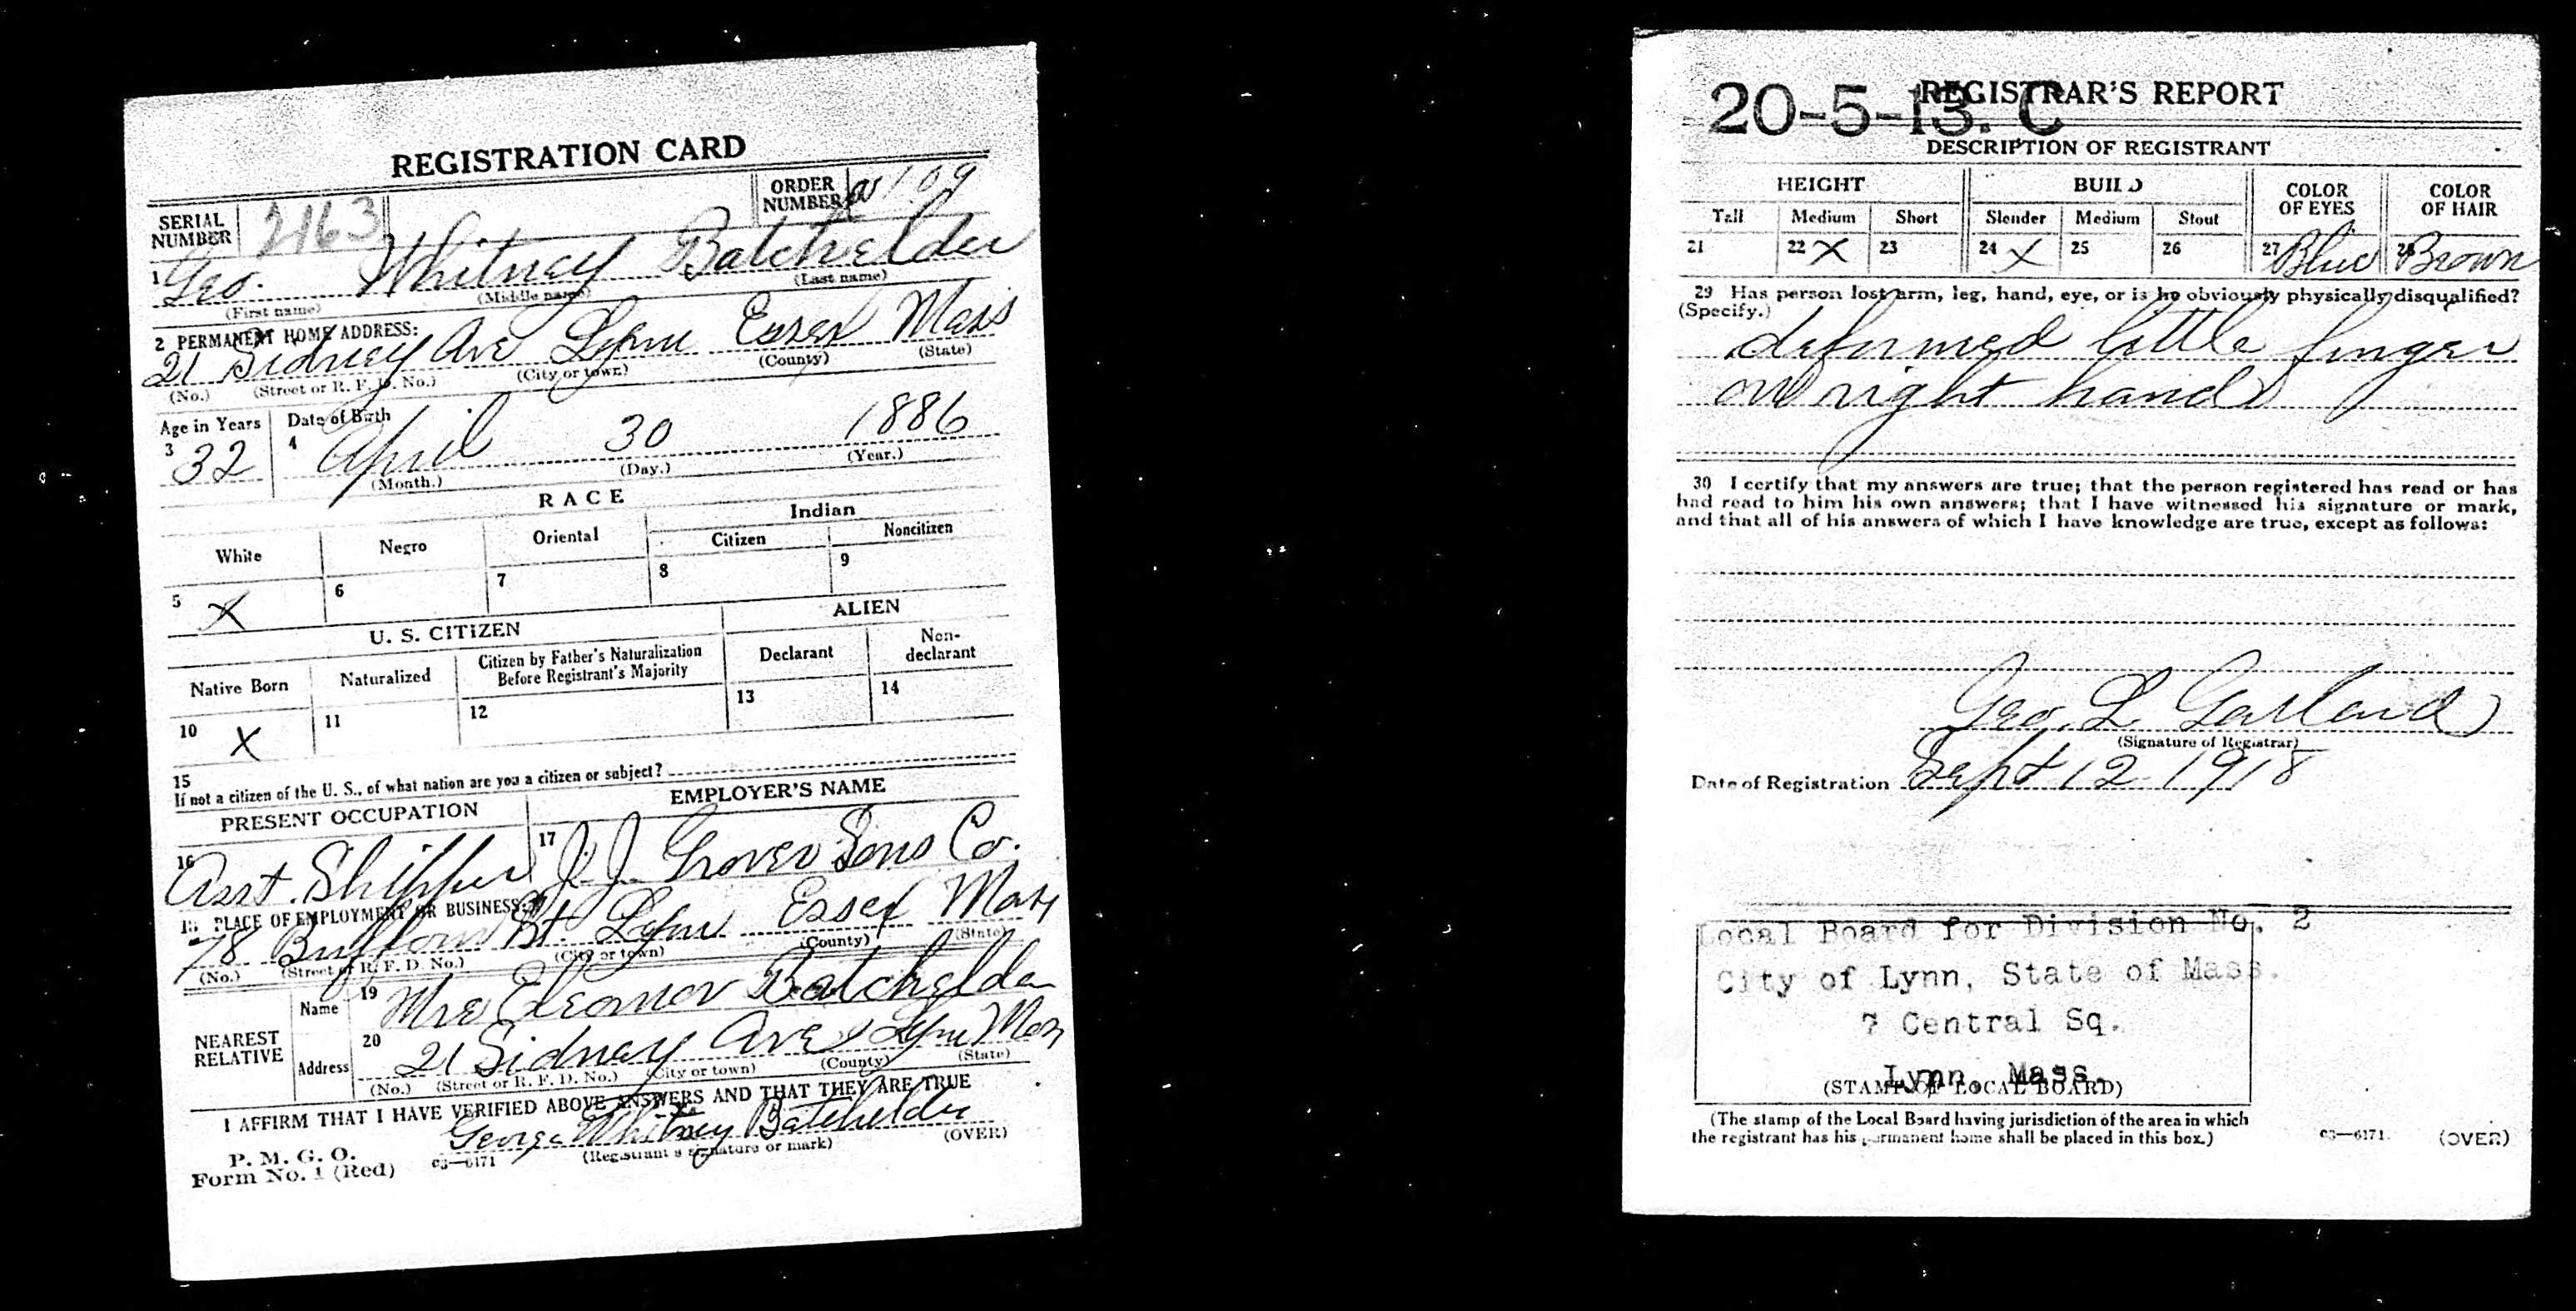 REGISTRATION CARD
SERIAL NUMBER 2163 ORDER NUMBER a 109
1 Geo. Whitney Batchelder
(First name) (Middle name) (Last name)
2 PERMANENT HOME ADDRESS:
21 Sidney Ave Lynn Essex Mass
(No.) (Street or R. F. D. No.) (City or town) (County) (State)
Age in Years Date of Birth
3 32 4 April 30 1886
(Month.) (Day.) (Year.)
RACE
White Negro Oriental Indian
Citizen Noncitizen
5 X 6 7 8 9
U. S. CITIZEN ALIEN
Native Born Naturalized Citizen by Father's Naturalization Before Registrant's Majority Declarant Non-declarant
10 X 11 12 13 14
15
If not a citizen of the U. S., of what nation are you a citizen or subject?
PRESENT OCCUPATION EMPLOYER'S NAME
16 Asst. Shipper 17 J. J. Grover Sons Co.
18 PLACE OF EMPLOYMENT OR BUSINESS:
78 St. Lynn Essex Mass
(No.) (Street or R. F. D. No.) (City or town) (County) (State)
NEAREST RELATIVE Name 19 Mrs Eleanor Batchelder
Address 20 21 Sidney Ave Lynn Mass
(No.) (Street or R. F. D. No.) (City or town) (County) (State)
I AFFIRM THAT I HAVE VERIFIED ABOVE ANSWERS AND THAT THEY ARE TRUE
George Whitney Batchelder
P. M. G. O.
Form No. 1 (Red) c3—6171 (Registrant's signature or mark) (OVER)
REGISTRAR'S REPORT
20-5-13. C
DESCRIPTION OF REGISTRANT
HEIGHT BUILD COLOR OF EYES COLOR OF HAIR
Tall Medium Short Slender Medium Stout
21 22 X 23 24 X 25 26 27 Blue 28 Brown
29 Has person lost arm, leg, hand, eye, or is he obviously physically disqualified?
(Specify.)
deformed little finger
on right hand
30 I certify that my answers are true; that the person registered has read or has
had read to him his own answers; that I have witnessed his signature or mark,
and that all of his answers of which I have knowledge are true, except as follows:
Geo. L. Garland
(Signature of Registrar)
Date of Registration Sept 12 1918
Local Board for Division No. 2
City of Lynn, State of Mass.
7 Central Sq.
Lynn, Mass.
(STAMP OF LOCAL BOARD)
(The stamp of the Local Board having jurisdiction of the area in which
the registrant has his permanent home shall be placed in this box.)
c3—6171 (OVER)